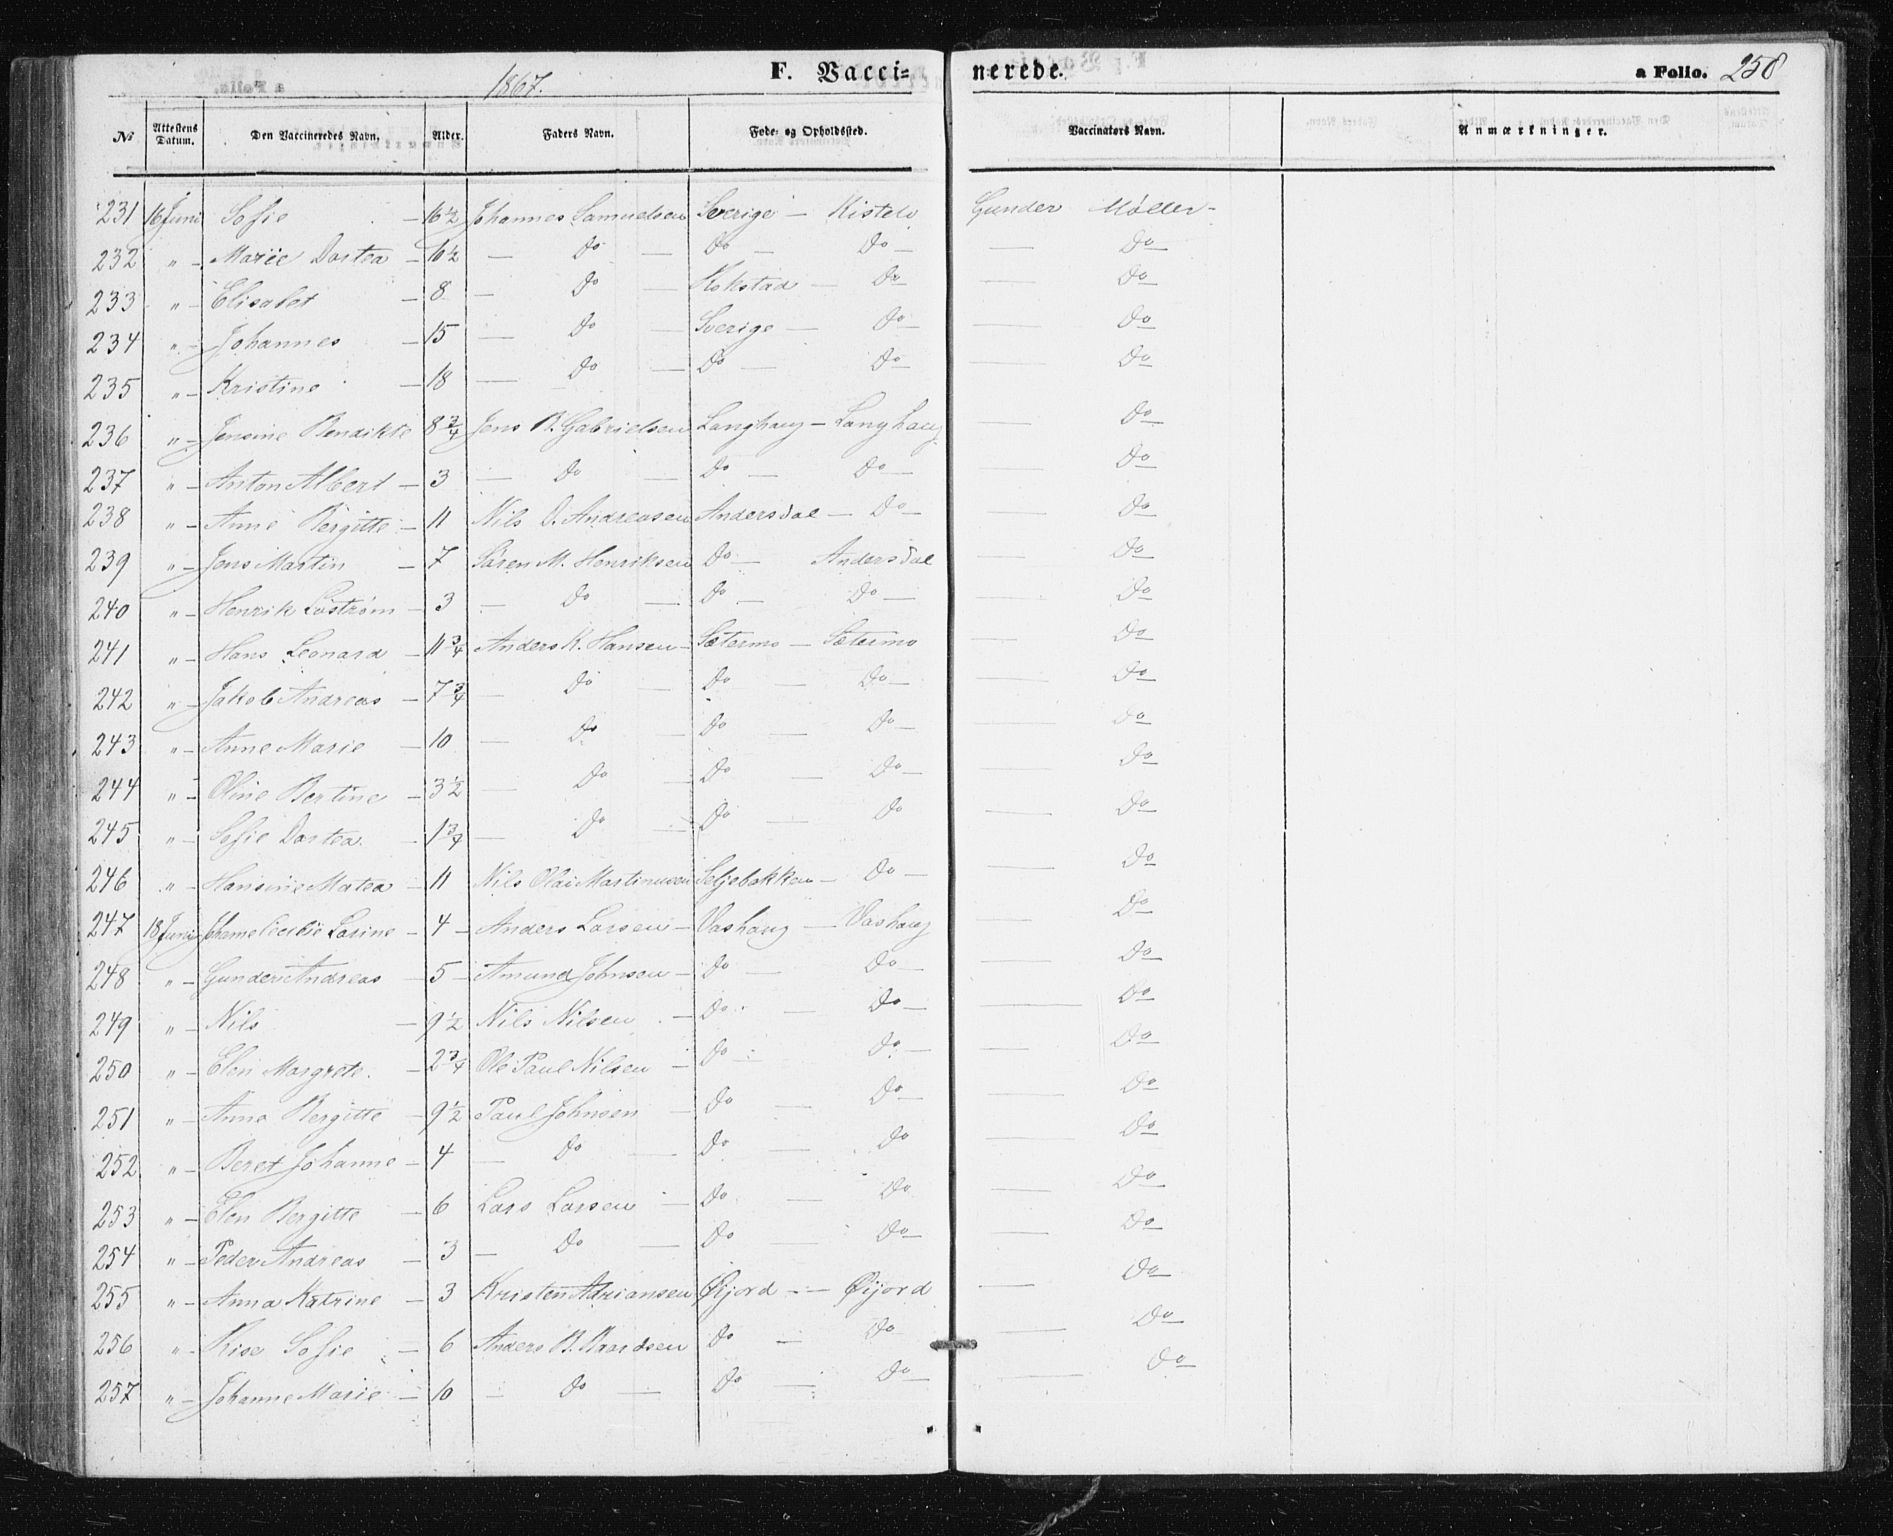 1867. F. Vacci= nerede. a Folio. 258
No Attestens Datum. Den Vaccineredes Navn. Alder. Faders Navn. Føde- og Opholdssted. Vaccinatørs Navn. Anmærkninger.
231 16 Juni Sofie — 16½ Johannes Samuelsen Sverige — Kistelv Gunder Møller —
232 " — Marie Dortea — 16½ — Do — Do — Do — — Do
233 " — Elisabet — 8 — Do — Kokstad — Do — Do
234 " — Johannes — 15 — Do — Sverige — Do — Do
235 " — Kristine — 18 — Do — Do — Do — Do
236 " — Jensine Bendikte 8¾ Jens B. Gabrielsen Langhaug — Langhaug — Do
237 " — Anton Albert — 3 — Do — Do — Do — — Do
238 " — Anne Bergitte — 11 Nils O. Andreasen Andersdal — Do — — Do
239 " — Jens Martin — 7 Søren M. Henriksen Do — Andersdal — Do
240 " — Henrik Løstrøm — 3 — Do — Do — Do — — Do
241 " — Hans Leonard — 11¾ Anders K. Hansen — Sætermo — Sætermo — Do
242 " — Jakob Andreas — 7¾ — Do — Do — Do — — Do
243 " — Anne Marie — 10 — Do — Do — Do — — Do
244 " — Oline Bertine — 3½ — Do — Do — Do — — Do
245 " — Sofie Dortea. — 1¾ — Do — Do — Do — Do
246 " — Hansine Matea — 11 Nils Olai Martinusen Seljebakken — Do — — Do
247 18 Juni Johanne Cecilie Larine — 4 — Anders Larsen — Vashaug — Vashaug — Do
248 " — Gunder Andreas — 5 — Amund Johnsen — Do — Do — — Do
249 " — Nils — 9½ Nils Nilsen — Do — Do — — Do
250 " — Elen Margrete. — 2¾ Ole Paul Nilsen — Do — Do — — Do
251 " — Anna Bergitte — 9½ Paul Johnsen — Do — Do — — Do
252 " — Beret Johanne — 4 — Do — Do — Do — Do
253 " — Elen Bergitte — 6 Lars Larsen — Do — Do — Do
254 " — Peder Andreas — 3 — Do — Do — Do — — Do
255 " — Anna Katrine — 3 Kristen Adriansen Øijord — Øijord — Do
256 " — Sofie — 6 Anders B. Baardsen Do — Do — Do
257 " — Johanne Marie — 10 — Do — Do — Do — — Do